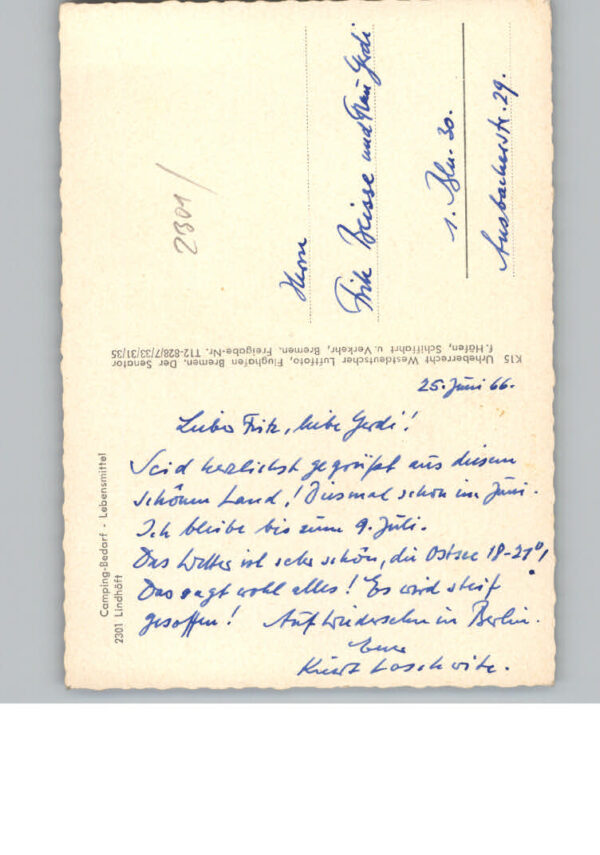 25. Juni 66.
Lieber Fritz, liebe Gerdi!
Seid herzlichst gegrüßt aus diesem
schönen Land! Diesmal schon im Juni.
Ich bleibe bis zum 9. Juli.
Das Wetter ist sehr schön, die Ostsee 18-21°!
Das sagt wohl alles! Es wird steif
gesoffen! Auf Wiedersehn in Berlin.
Euer
Kurt Loschwitz.
Camping-Bedarf - Lebensmittel
2301 Lindhöft
K15 Urheberrecht Westdeutscher Luftfoto, Flughafen Bremen. Der Senator
f. Häfen, Schiffahrt u. Verkehr, Bremen. Freigabe-Nr. T12-828/7/33/31/35
2301/
Herrn
Fritz Beisse und Frau Gerdi
1. Bln. 30.
Ansbacherstr. 29.